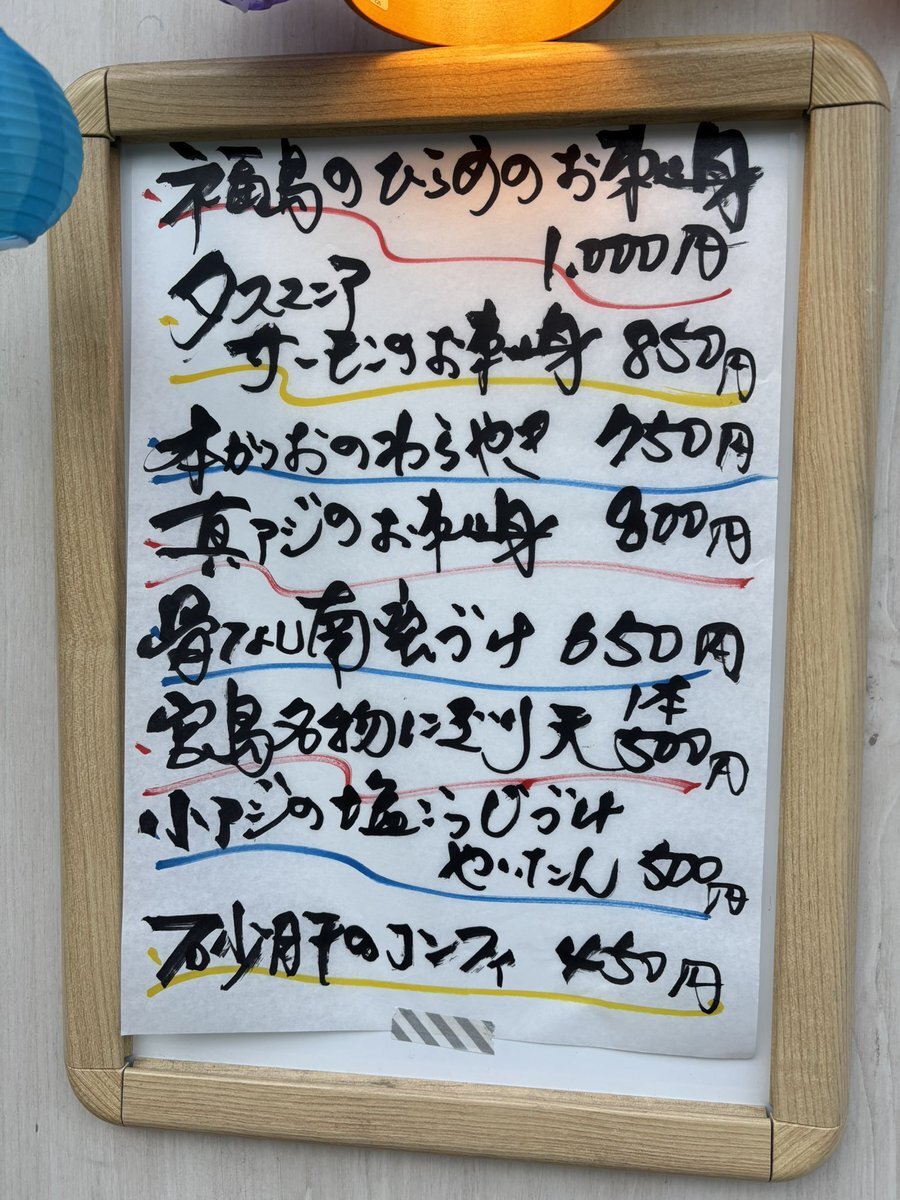 福島のひらめのお刺身
1.000円
タスマニア
サーモンのお刺身 850円
本がつおのわらやき 750円
真アジのお刺身 800円
骨なし南蛮づけ 650円
宮島名物にぎり天 1本 500円
小アジの塩こうじづけ
やいたん 500円
砂肝のコンフィ 450円